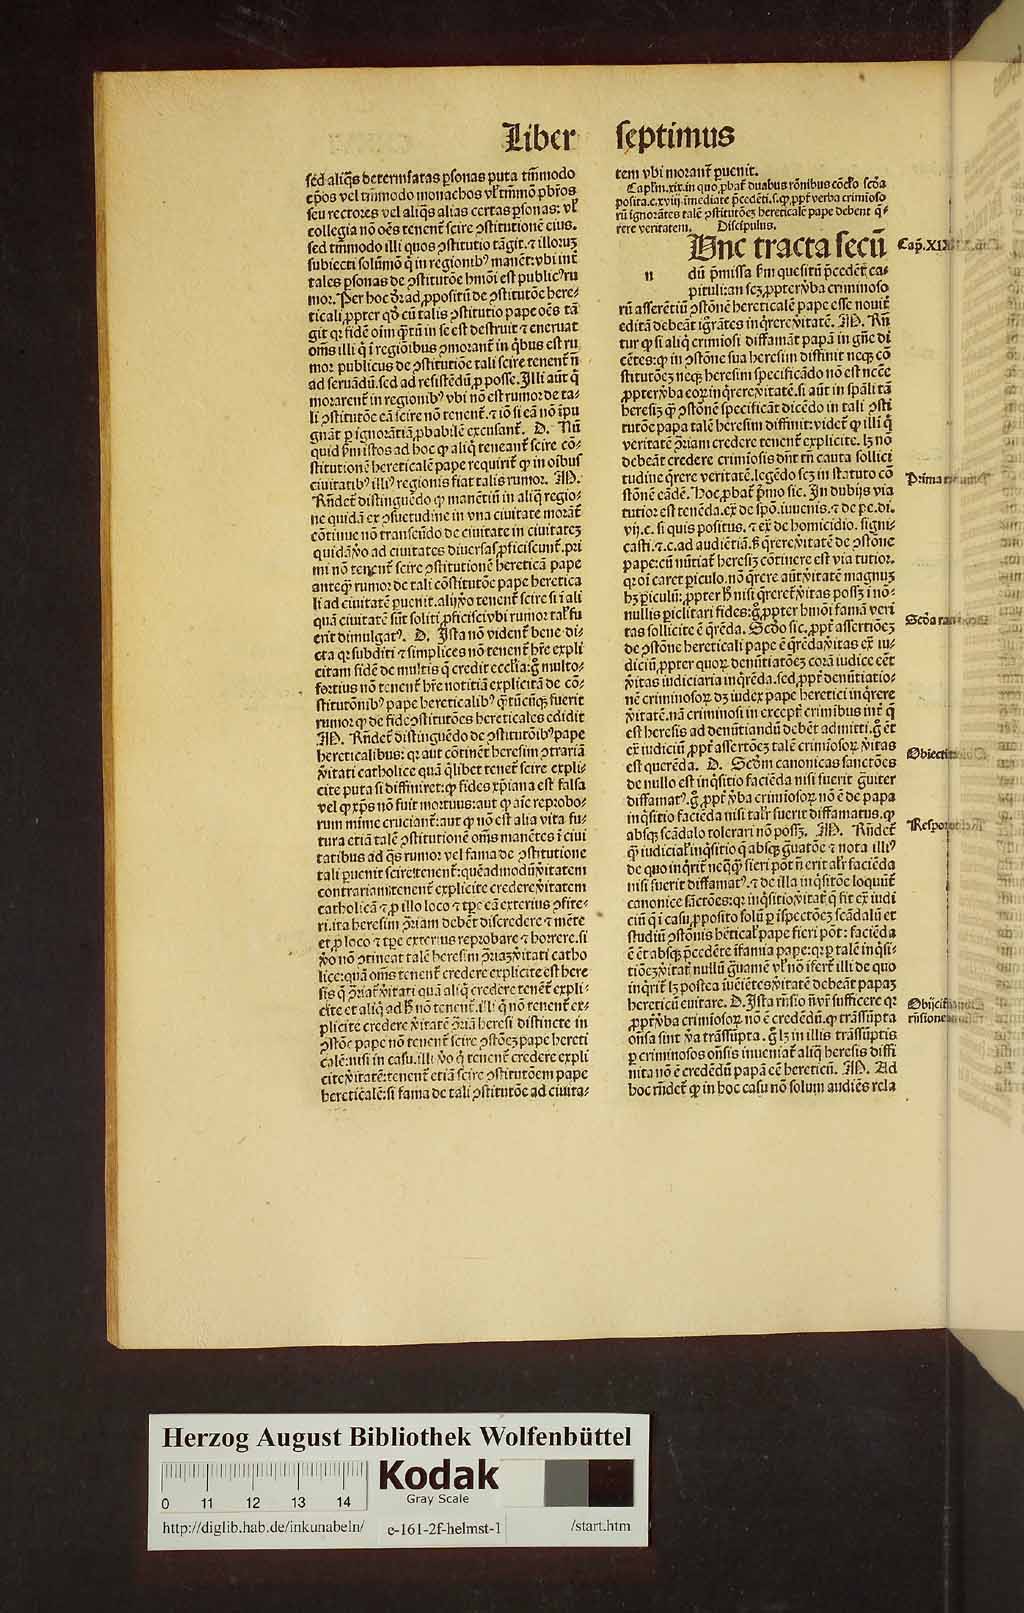 Liber septimus
sed aliq̃s determĩatas ꝑsonas puta tm̃modo
ep̃os vel tm̃modo monachos vl̓ tm̃mõ pbr̃os
seu rectores vel aliq̃s alias certas ꝑsonas: vl̓
collegia nõ oẽs tenent̃ scire ꝯstitutionẽ eius.
sed tm̃modo illi quos ꝯstitutio tãgit. ⁊ illoruꝫ
subiecti solũmõ q̃ in regionibꝰ manẽt: vbi int̃
tales ꝑsonas de ꝯstitutõe hmõi est publicꝰ ru
mor. Per hoc dr̃ ad ꝓpositũ de ꝯstitutõe here⸗
ticali, ꝓpter qd̃ cũ talis ꝯstitutio pape oẽs tã
git qꝛ fidẽ oĩm q̃tũ in se est destruit ⁊ eneruat
om̃s illi q̃ ĩ regiõibus ꝯmorant̃ in q̃bus est ru
mor publicus de ꝯstitutiõe tali scire tenent̃ ñ
ad seruãdũ. sed ad resistẽdũ ꝓ posse. Illi aũt q̃
morarent̃ in regionibꝰ vbi nõ est rumor de ta⸗
li ꝯstitutõe eã scire nõ tenent̃. ⁊ iõ si eã nõ ĩpu
gnãt ꝑ ignorãtiã ꝓbabilẽ excusant̃. D. Nũ
quid ẜm istos ad hoc ꝙ aliq̃ teneant̃ scire cõ⸗
stitutionẽ hereticalẽ pape requirit̃ ꝙ in oĩbus
ciuitatibꝰ illiꝰ regionis fiat talis rumor. M.
Rñdet̃ distinguẽdo ꝙ manẽtiũ in aliq̃ regio⸗
ne quidã ex ꝯsuetudine in vna ciuitate morãt̃
cõtinue nõ transeũdo de ciuitate in ciuitateꝫ
quidã ṽo ad ciuitates diuersas ꝓficiscunt̃. pri
mi nõ tenent̃ scire ꝯstitutionẽ hereticã pape
anteq̃ꝫ rumor de tali cõstitutõe pape heretica
li ad ciuitatẽ ꝑuenit. alij ṽo tenent̃ scire si ĩ ali
quã ciuitatẽ sũt soliti ꝓficisci vbi rumor tal̓ fu
erit diuulgatꝰ. D. Ista nõ vident̃ bene di⸗
cta qꝛ subditi ⁊ simplices nõ tenent̃ hr̃e expli
citam fidẽ de multis q̃ credit ecclia: g̊ multo⸗
fortius nõ tenent̃ hr̃e notitiã explicitã de cõ⸗
stitutõnibꝰ pape hereticalibꝰ q̃tũcũqꝫ fuerit
rumor ꝙ de fide ꝯstitutões hereticales edidit
M. Rñdet̃ distinguẽdo de ꝯstitutõibꝰ pape
hereticalibus: qꝛ aut cõtinẽt heresim ꝯtrariã
ṽitati catholice quã q̃libet tenet̃ scire expli⸗
cite puta si diffiniret: ꝙ fides xp̃iana est falsa
vel ꝙ xp̃s nõ fuit mortuus: aut ꝙ aĩe reprobo⸗
rum mĩme cruciant̃: aut ꝙ nõ est alia vita fu⸗
tura etiã talẽ ꝯstitutionẽ om̃s manẽtes ĩ ciui
tatibus ad q̃s rumor vel fama de ꝯstitutione
tali ꝑuenit scire tenent̃: quẽadmodũ ṽitatem
contrariam tenent̃ explicite credere ṽitatem
catholicã ⁊ ꝓ illo loco ⁊ tp̃e eã exterius ꝯfite⸗
ri. ita heresim ꝯ̃riam debẽt discredere ⁊ mẽte
et ꝓ loco ⁊ tp̃e exterius reprobare ⁊ horrere. si
ṽo nõ ꝯtineat talẽ heresim ꝯ̃riaꝫ ṽitati catho
lice: quã om̃s tenent̃ credere explicite est here
sis q̃ ꝯ̃riat̃ ṽitati quã aliq̃ credere tenẽt̃ expli⸗
cite et aliq̃ ad hoc nõ tenent̃. illi q̃ nõ tenent̃ ex⸗
plicite credere ṽitatẽ ꝯ̃riã heresi distincte in
ꝯstõe pape nõ tenent̃ scire ꝯstõeꝫ pape hereti
calẽ: nisi in casu. illi ṽo q̃ tenent̃ credere expli
cite ṽitatẽ: tenent̃ etiã scire ꝯstitutõem pape
hereticalẽ: si fama de tali ꝯstitutõe ad ciuita⸗
tem vbi morant̃ ꝑuenit.
Capl̓m .xix. in quo ꝓbat̃ duabus rõnibus cõclo̓ scd̓a
posita .c. xviij. ĩmediate p̃cedẽti. s. ꝙ ꝓpt̃ verba crimioso
rũ ignorãtes talẽ ꝯstitutõeꝫ hereticalẽ pape debent q̃⸗
rere veritatem. Discipulus.
Vnc tracta secũ
n
dũ p̃missa ẜm quesitũ p̃cedẽt̃ ca⸗
pituli: an scꝫ ꝓpter ṽba criminoso
rũ asserẽtiũ ꝯstõnẽ hereticalẽ pape esse nouit̃
editã debeãt ig̃rãtes inq̃rere ṽitatẽ. M. Rñ
tur ꝙ si aliq̃ crimiosi diffamãt papã in gñe di
cẽtes: ꝙ in ꝯstõne sua heresim diffinit neqꝫ cõ
stitutõeꝫ neqꝫ heresim specificãdo nõ est nc̃ẽ
ꝓpter ṽba eoꝝ inq̃rere ṽitatẽ. si aũt in sp̃ali tã
heresiꝫ q̃ꝫ ꝯstõnẽ specificãt dicẽdo in tali ꝯsti
tutõe papa talẽ heresim diffinit: videt̃ ꝙ illi q̃
veritatẽ ꝯ̃riam credere tenent̃ explicite. lꝫ nõ
debeãt credere crimiosis dñt tñ cauta sollici
tudine q̃rere veritatẽ. legẽdo scꝫ in statuto cõ
stõnẽ eãdẽ. Hoc ꝓbat̃ p̃mo sic. In dubijs via
tutior est tenẽda. ex̃ de spõ. iuuenis. ⁊ de pe. di.
vij. c. si quis positus. ⁊ ex̃ de homicidio. signi⸗
casti. ⁊. c. ad audiẽtiã. ẜ q̃rere ṽitatẽ de ꝯstõne
pape: cũ nũtiat̃ heresiꝫ cõtinere est via tutior.
qꝛ oĩ caret ꝑiculo. nõ q̃rere aũt ṽitatẽ magnuꝫ
hꝫ ꝑiculũ: ꝓpter hoc nisi q̃reret̃ ṽitas possꝫ ĩ nõ⸗
nullis ꝑiclitari fides: g̊ ꝓpter hmõi famã veri
tas sollicite ẽ q̃rẽda. Scd̓o sic. ꝓpt̃ assertiõeꝫ
de ꝯstõne hereticali pape ẽ q̃rẽda ṽitas ex̃ iu⸗
diciũ ꝓpter quoꝝ denũtiatõeꝫ corã iudice eẽt
ṽitas iudiciaria inq̃rẽda. sed ꝓpt̃ denũtiatio⸗
nẽ criminosoꝝ dꝫ iudex pape heretici inq̃rere
ṽitatẽ. nã criminosi in except̃ crimibus int̃ q̃
est heresis ad denũtiandũ debẽt admitti. g̊ ẽt
ex̃ iudiciũ ꝓpt̃ assertõeꝫ talẽ crimiosoꝝ ṽitas
est querẽda. D. Scd̓m canonicas sanctões
de nullo est inq̃sitio faciẽda nisi fuerit g̃uiter
diffamatꝰ. g̊ ꝓpt̃ ṽba crimiosoꝝ nõ ẽ de papa
inq̃sitio faciẽda nisi talit̃ fuerit diffamatus. ꝙ
absqꝫ scãdalo tolerari nõ possꝫ. M. Rñdet̃
ꝙ iudicial̓ inq̃sitio q̃ absqꝫ g̃uatõe ⁊ nota illiꝰ
de quo inq̃rit̃ neq̃ꝙ̃ fieri pot̃ ñ erit alr̓ faciẽda
nisi fuerit diffamatꝰ. ⁊ de illa inq̃sitõe loquũt̃
canonice sãctões: qꝛ inq̃sitio ṽitat̃ q̃ fit ex̃ iudi
ciũ q̃ ĩ casu ꝓposito solũ ꝑ ĩspectõeꝫ scãdalũ et
studiũ ꝯstõnis hẽtical̓ pape fieri põt: faciẽda
ẽ ẽt absqꝫ p̃cedẽte ĩfamia pape: qꝛ ꝑ talẽ inq̃si⸗
tiõeꝫ ṽitat̃ nullũ g̃uamẽ vl̓ nõ ĩfert̃ illi de quo
inq̃rit̃ lꝫ postea ĩueiẽtes ṽitatẽ debeãt papaꝫ
hereticũ euitare. D. Ista rñsio ñ vr̃ sufficere qꝛ
ꝓpt̃ ṽba crimiosoꝝ nõ ẽ credẽdũ. ꝙ trãssũpta
oñsa sint ṽa trãssũpta. g̊ lꝫ in illis trãssũptis
ꝑ criminosos oñsis inueniat̃ aliq̃ heresis diffi
nita nõ ẽ credẽdũ papã eẽ hereticũ. M. Ad
hoc rñdet̃ ꝙ in hoc casu nõ solum audiẽs rela
Cap̃. XIX
Prima
Scd̓a
Obiectio
Responsio
Obijcit
rñsionẽ
Herzog August Bibliothek Wolfenbüttel
Kodak
Gray Scale
0 11 12 13 14
http://diglib.hab.de/inkunabeln/ e-161-2f-helmst-1 /start.htm